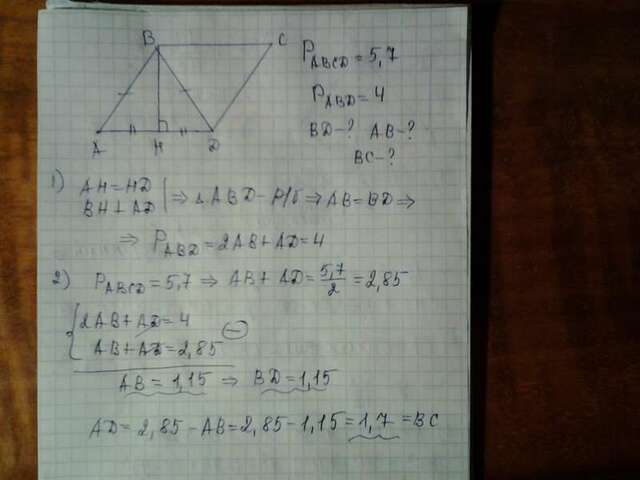 B C
A H D
P_ABCD = 5,7
P_ABD = 4
BD-? AB-?
BC-?
1) AH = HD
BH ⊥ AD | ⇒ △ABD - р/б ⇒ AB = BD ⇒
⇒ P_ABD = 2AB + AD = 4
2) P_ABCD = 5,7 ⇒ AB + AD = 5,7/2 = 2,85
{ 2AB + AD = 4
AB + AD = 2,85 ⊖
AB = 1,15 ⇒ BD = 1,15
AD = 2,85 - AB = 2,85 - 1,15 = 1,7 = BC